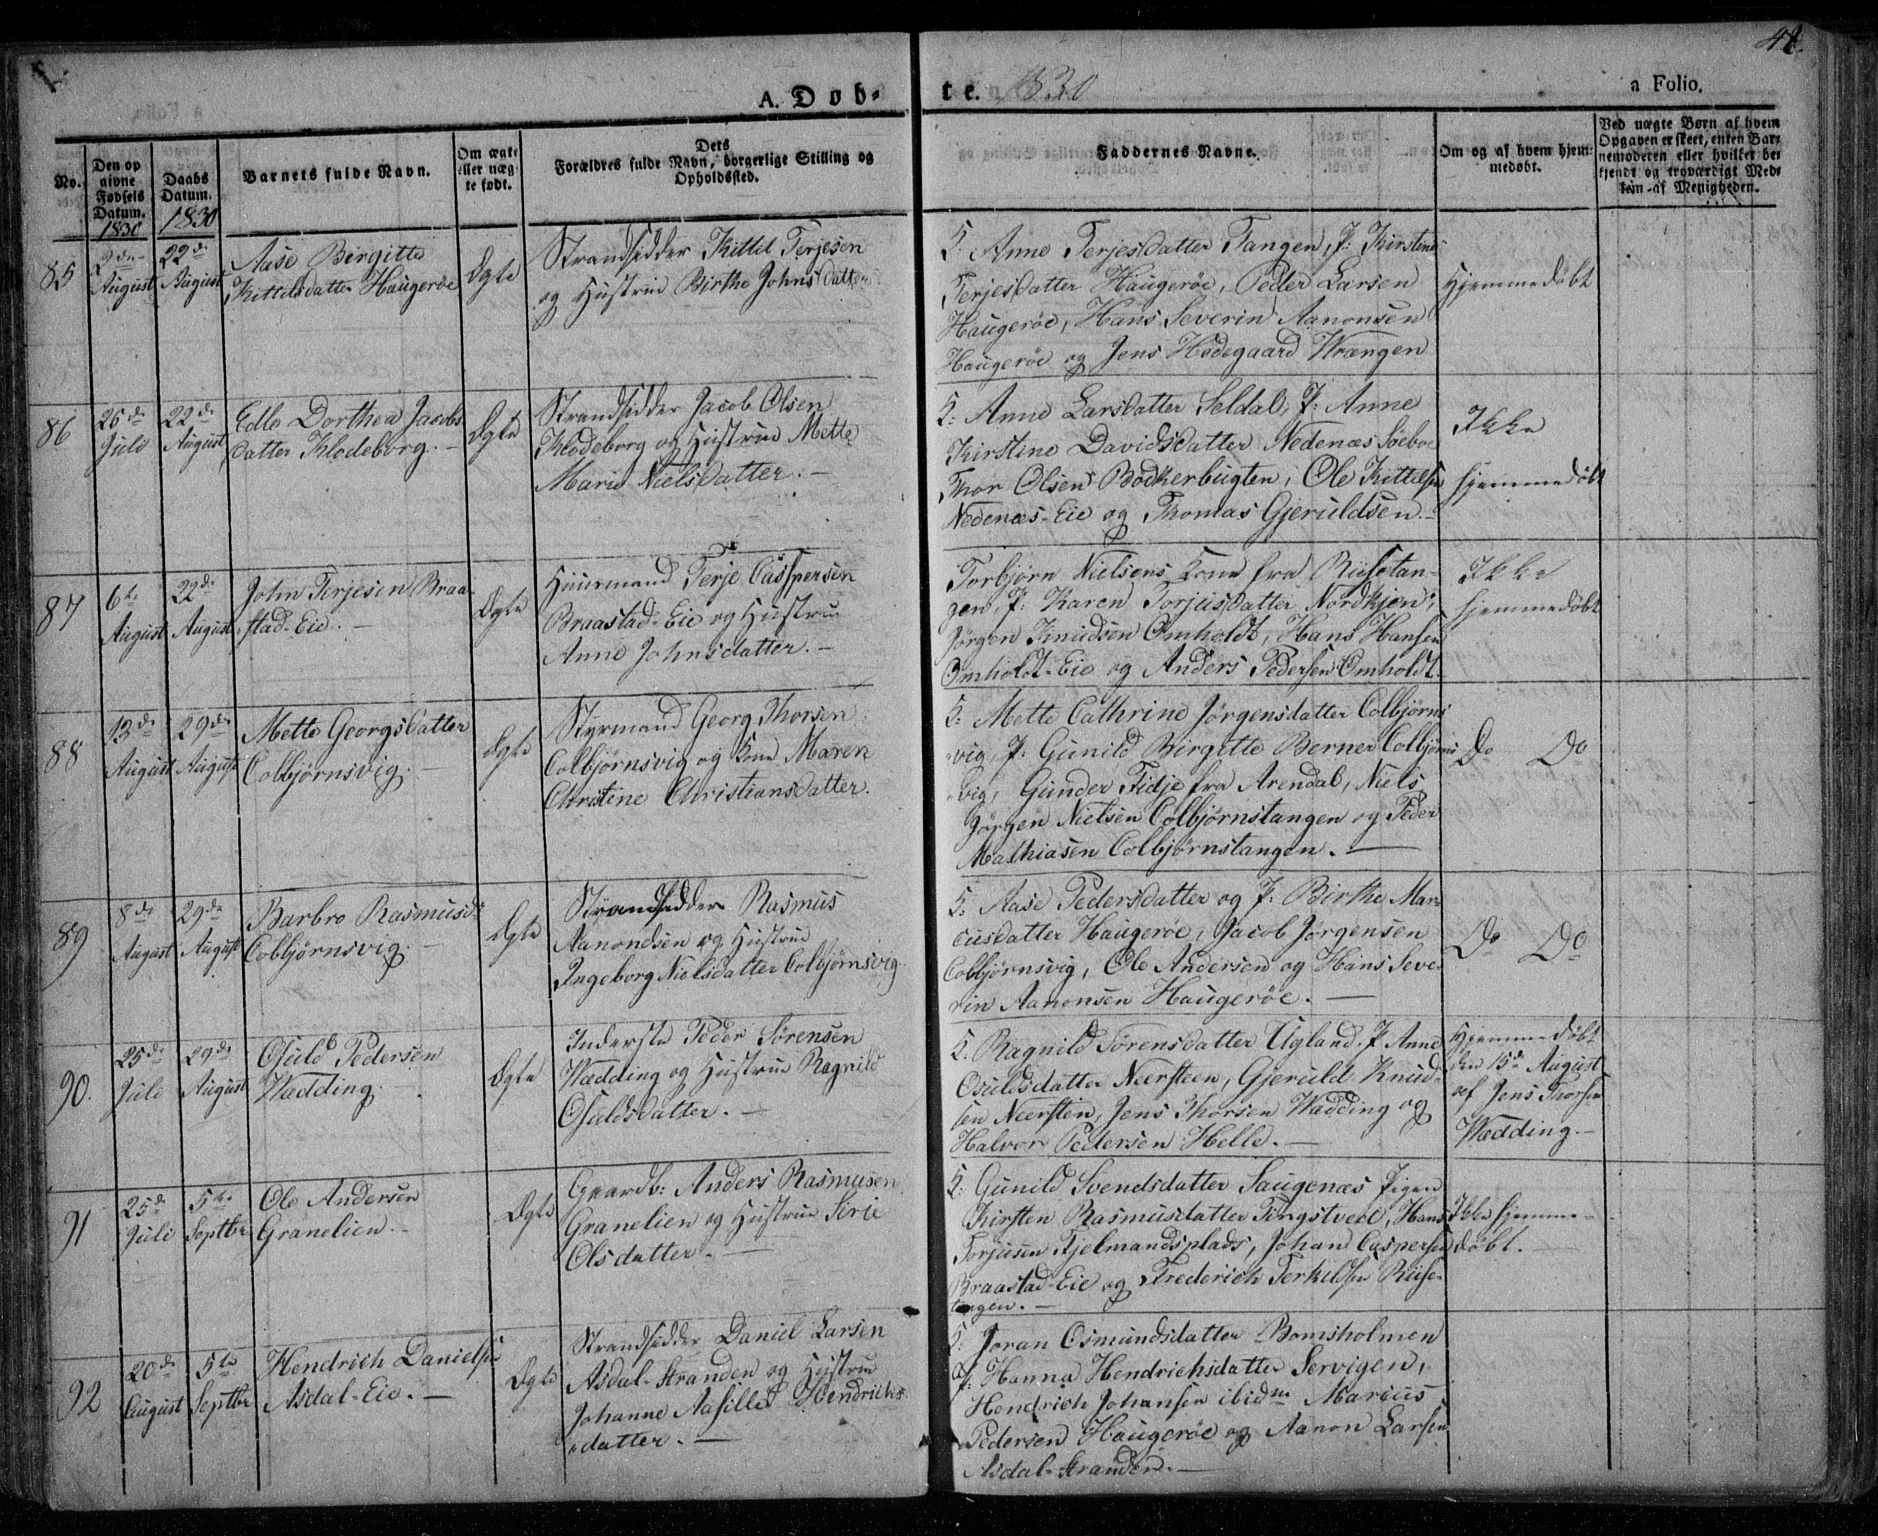 42.
A. Døb-
te. 1830
a Folio.
No.
Den op
givne
Fødsels
Datum.
1830
Daabs
Datum.
1830
Barnets fulde Navn.
Om ægte
eller uæg-
te født.
Dets
Forældres fulde Navn, borgerlige Stilling og
Opholdssted.
Faddernes Navne.
Om og af hvem hjem-
medøbt.
Ved uægte Børn af hvem
Opgaven er skeet, enten Bar-
nemoderen eller hvilket be-
kjendt og troværdigt Med-
lem af Menigheden.
85
August
22de
August
Aase Birgitte
Kittelsdatter Haugerøe
Ægte
Strandsidder Kittel Terjesen
og Hustrue Birthe Johnsdatter
K. Anne Terjesdatter Tangen, P: Kirstene
Terjesdatter Haugerøe, Peder Larsen
Haugerøe, Hans Severin Aanonsen
Haugerøe og Jens Hødegaard Wrængen
Hjemmedøbt
86
26de
Juli
22de
August
Edle Dorthea Jacobs
datter Klodeborg. –
Ægte
Strandsidder Jacob Olsen
Klodeborg og Hustrue Mette
Marie Nielsdatter. –
K: Anne Larsdatter Seldal, P: Anne
Kirstine Davidsdatter Nedenæs Søeboe
Thor Olsen Bødkerbugten, Ole Kittelsen
Nedenæs-Eie og Thomas Gjeruldsen. –
Ikke
hjemmedøbt
87
6te
August
22de
August
John Terjesen Braa-
stad-Eie. –
Ægte
Huusmand Terje Caspersen
Braastad-Eie og Hustrue
Anne Johnsdatter. –
Torbjørn Nielsens Kone fra Riisetan-
gen, P: Karen Torjusdatter Nordkjen,
Jørgen Knudsen Omholdt, Hans Hansen
Omholdt-Eie og Anders Pedersen Omholdt.
Ikke
hjemmedøbt
88
13de
August
29de
August
Mette Georgsdatter
Colbjørnsvig. –
Ægte
Styrmand Georg Thorsen
Colbjørnsvig og Kone Maren
Christine Christiansdatter.
K: Mette Cathrine Jørgensdatter Colbjørns
vig, P: Gunild Birgitte Berner Colbjørns
vig, Gunder Tidje fra Arendal, Niels
Jørgen Nielsen Colbjørnstangen og Peder
Mathiasen Colbjørnstangen. –
Do Do
89
8de
August
29de
August
Barbro Rasmusd:
Colbjørnsvig. –
Ægte
Strandsidder Rasmus
Aanondsen og Hustrue
Ingeborg Nielsdatter Colbjørnsvig.
K: Aase Pedersdatter og P: Birthe Mar-
cusdatter Haugerøe, Jacob Jørgensen
Colbjørnsvig, Ole Andersen og Hans Seve-
rin Aanonsen Haugerøe. –
Do Do
90.
25de
Juli
29de
August
Osuld Pedersen
Wædding.
Ægte
Inderste Peder Sørensen
Wædding og Hustrue Ragnild
Osuldsdatter. –
K: Ragnild Sørensdatter Ugland, P. Anne
Osuldsdatter Neersteen, Gjeruld Knud-
sen Neersten, Jens Thorsen Wædding og
Halvor Pedersen Helle. –
Hjemmedøbt
den 15de August
af Jens Thorsen
Wædding. –
91
25de
Juli
5te
Septbr
Ole Andersen
Granelien. –
Ægte
Gaardb: Anders Rasmusen
Granelien og Hustrue Sirie
Olsdatter. –
K: Gunild Svendsdatter Saugenæs Pigen
Kirsten Rasmusdatter Tingstvedt, Hans
Torjusen Fjelmandsplads, Johan Caspersen
Braastad-Eie og Frederich Terkelsen Riise-
tangen. –
Ikke hjemme-
døbt. –
92
20de
August
5te
Septbr
Hendrich Danielsen
Asdal-Eie. –
Ægte
Strandsidder Daniel Larsen
Asdal-Stranden og Hustrue
Johanne Aasille Hendrichs
datter. –
K: Joran Osmundsdatter Bomsholmen
P: Hanna Hendrichsdatter Servigen,
Hendrich Johansen ibidm Marcus
Pedersen Haugerøe og Aanon Larsen
Asdal-Stranden. –